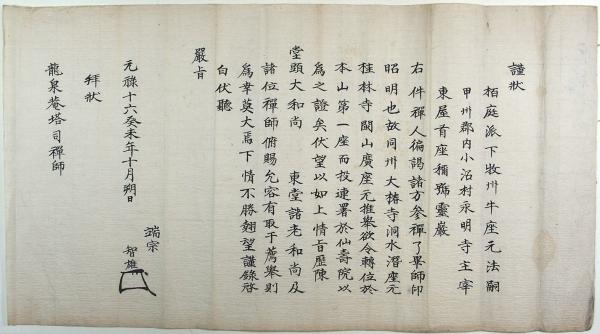 謹狀
栢庭派下牧州牛座元法嗣
甲州郡内小沼村永明寺主宰
東屋首座稱號靈巖
右件禪人徧謁諸方參禪了畢師印
昭明也故同州大椿寺洞水潛座元
桂林寺關山廣座元推擧欲令轉位於
本山第一座而投連署於仙壽院以
為之證矣伏望以如上情旨歷陳
堂頭大和尚 東堂諸老和尚及
諸位禪師俯賜允容有取干薦擧則
為幸莫大焉下情不勝翹望謹錄啓
白伏聽
嚴旨
元祿十六癸未年十月朔日
瑞宗
智雄
拜狀
龍泉菴塔司禪師